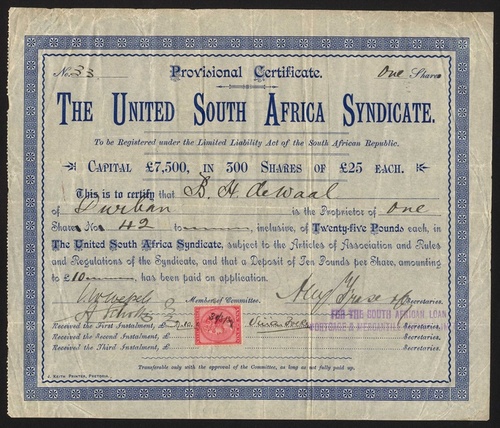 No. 33 Provisional Certificate. One Share
THE UNITED SOUTH AFRICA SYNDICATE.
To be Registered under the Limited Liability Act of the South African Republic.
CAPITAL £7,500, IN 300 SHARES OF £25 EACH.
This is to certify that B. H. de Waal
of Durban is the Proprietor of One
Share No 42 to inclusive, of Twenty-five Pounds each, in
The United South Africa Syndicate, subject to the Articles of Association and Rules
and Regulations of the Syndicate, and that a Deposit of Ten Pounds per Share, amounting
to £10 has been paid on application.
Members of Committee. Secretaries.
FOR THE SOUTH AFRICAN LOAN
MORTGAGE & MERCANTILE
Received the First Instalment, £ Secretaries.
Received the Second Instalment, £ Secretaries.
Received the Third Instalment, £ Secretaries.
Transferable only with the approval of the Committee, as long as not fully paid up.
J. KEITH PRINTER, PRETORIA.